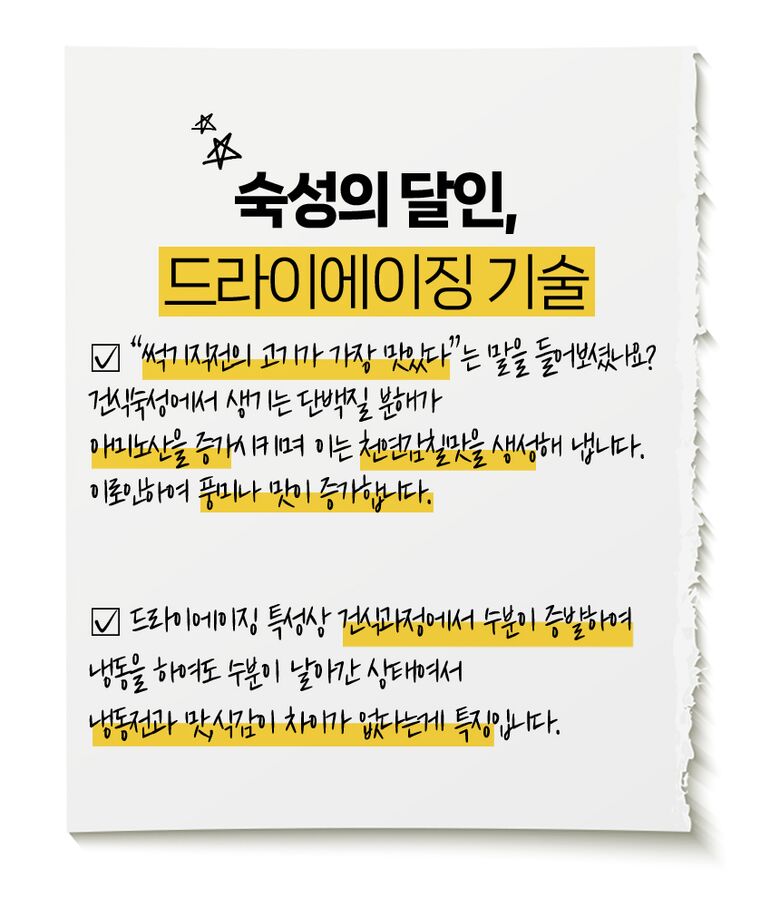 숙성의 달인,
드라이에이징 기술
"썩기직전의 고기가 가장 맛있다"는 말을 들어보셨나요?
건식숙성에서 생기는 단백질 분해가
아미노산을 증가시키며 이는 천연감칠맛을 생성해 냅니다.
이로인하여 풍미나 맛이 증가합니다.
드라이에이징 특성상 건식과정에서 수분이 증발하여
냉동을 하여도 수분이 날아간 상태여서
냉동전과 맛,식감이 차이가 없다는게 특징입니다.